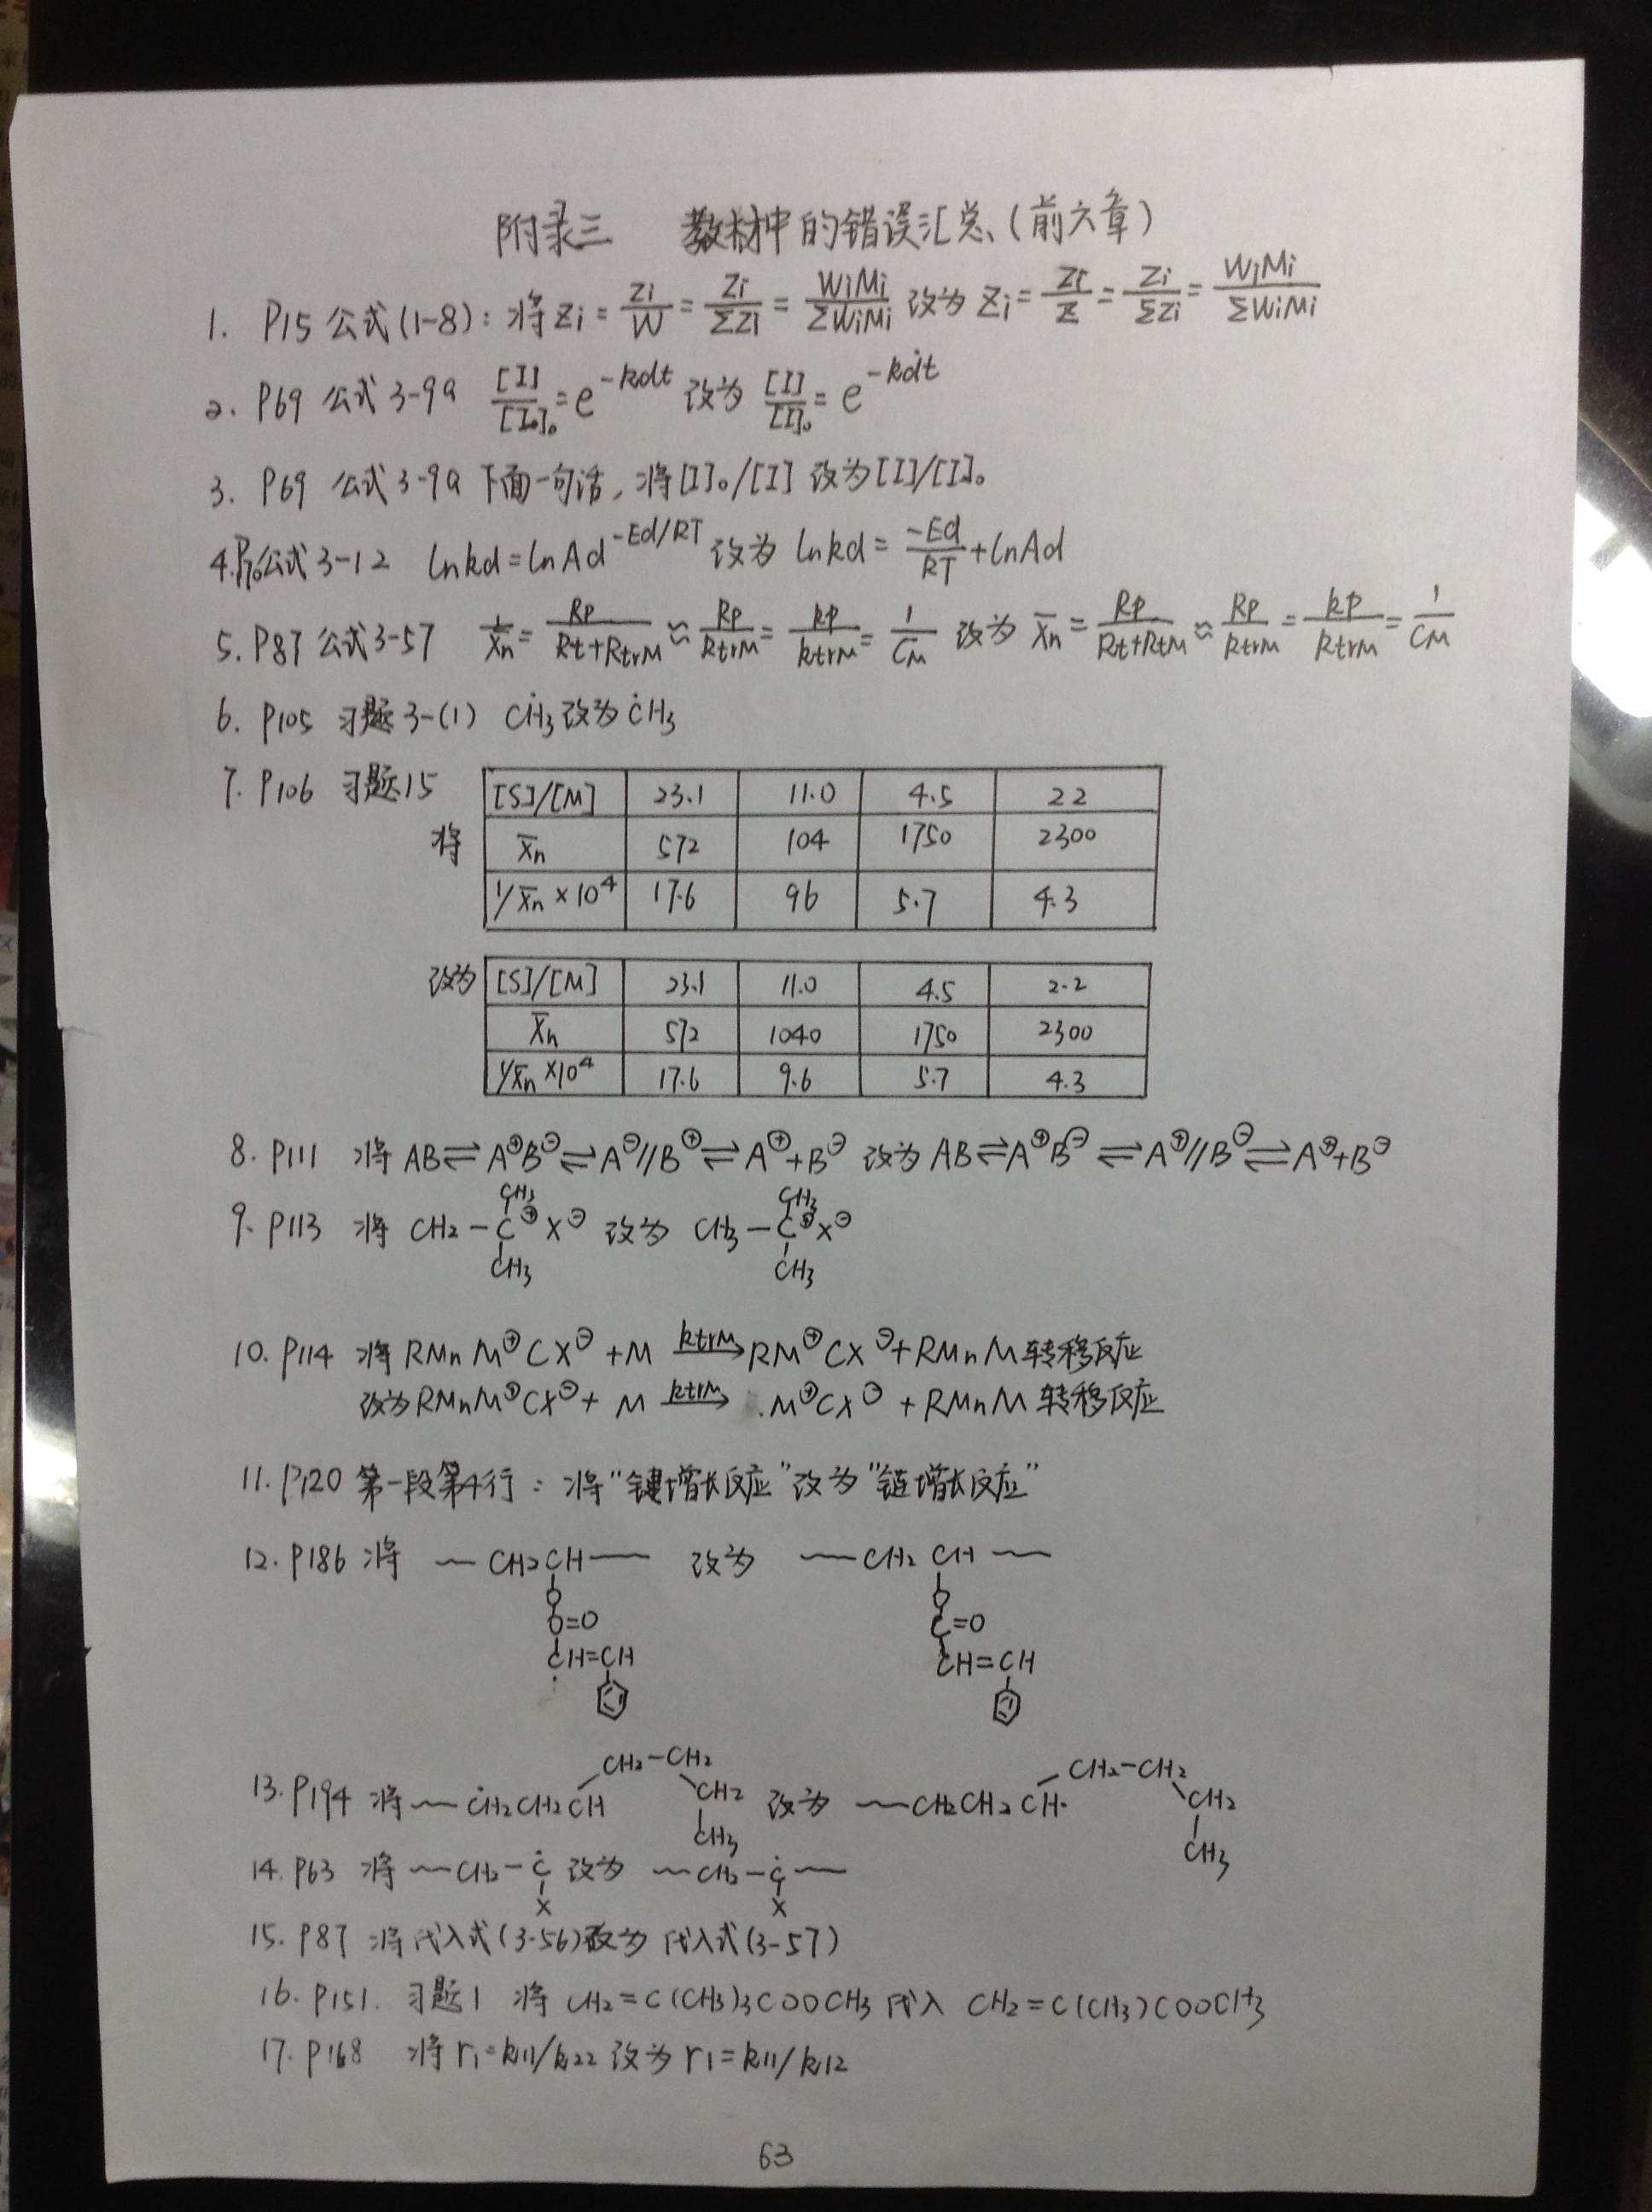 附录三 教材中的错误汇总(前六章)
1. P15 公式(1-8): 将 Zi = Zi/W = Zi/ΣZi = WiMi/ΣWiMi 改为 Zi = Zi/Z = Zi/ΣZi = WiMi/ΣWiMi
2. P69 公式3-9a [I]/[I₀]₀ = e^-kdt 改为 [I]/[I]₀ = e^-kdt
3. P69 公式3-9a 下面一句话,将[I]₀/[I] 改为[I]/[I]₀
4. P70公式3-12 lnkd = lnAd^-Ed/RT 改为 lnkd = -Ed/RT + lnAd
5. P87 公式3-57 1/X̄n = Rp/(Rt+RtrM) ≈ Rp/RtrM = kp/ktrM = 1/CM 改为 X̄n = Rp/(Rt+RtM) ≈ Rp/RtrM = kp/ktrM = 1/CM
6. P105 习题3-(1) CḢ3改为ĊH3
7. P106 习题15
将 [S]/[M] 23.1 11.0 4.5 22
X̄n 572 104 1750 2300
1/X̄n ×10⁴ 17.6 96 5.7 4.3
改为 [S]/[M] 23.1 11.0 4.5 2.2
X̄n 572 1040 1750 2300
1/X̄n ×10⁴ 17.6 9.6 5.7 4.3
8. P111 将 AB⇌A⊕B⊖⇌A⊖//B⊕⇌A⊕+B⊖ 改为 AB⇌A⊕B⊖⇌A⊕//B⊖⇌A⊕+B⊖
CH3 CH3
9. P113 将 CH2-C⊕X⊖ 改为 CH3-C⊕X⊖
CH3 CH3
10. P114 将 RMnM⊕CX⊖ + M —ktrM→ RM⊕CX⊖ + RMnM转移反应
改为RMnM⊕CX⊖ + M —ktrM→ .M⊕CX⊖ + RMnM 转移反应
11. P120 第一段第4行: 将"键增长反应"改为"链增长反应"
12. P186 将 ~CH2CH~ 改为 ~CH2CH~
O O
O=O C=O
CH=CH CH=CH
CH2-CH2 CH2-CH2
13. P194 将~ĊH2CH2CH CH2 改为 ~CH2CH2CH· CH2
CH3 CH3
14. P63 将 ~CH2-Ċ 改为 ~CH2-Ċ~
X X
15. P87 将代入式(3-56)改为 代入式(3-57)
16. P151. 习题1 将 CH2=C(CH3)3COOCH3 代入 CH2=C(CH3)COOCH3
17. P168 将 r1=k11/k22 改为 r1=k11/k12
63